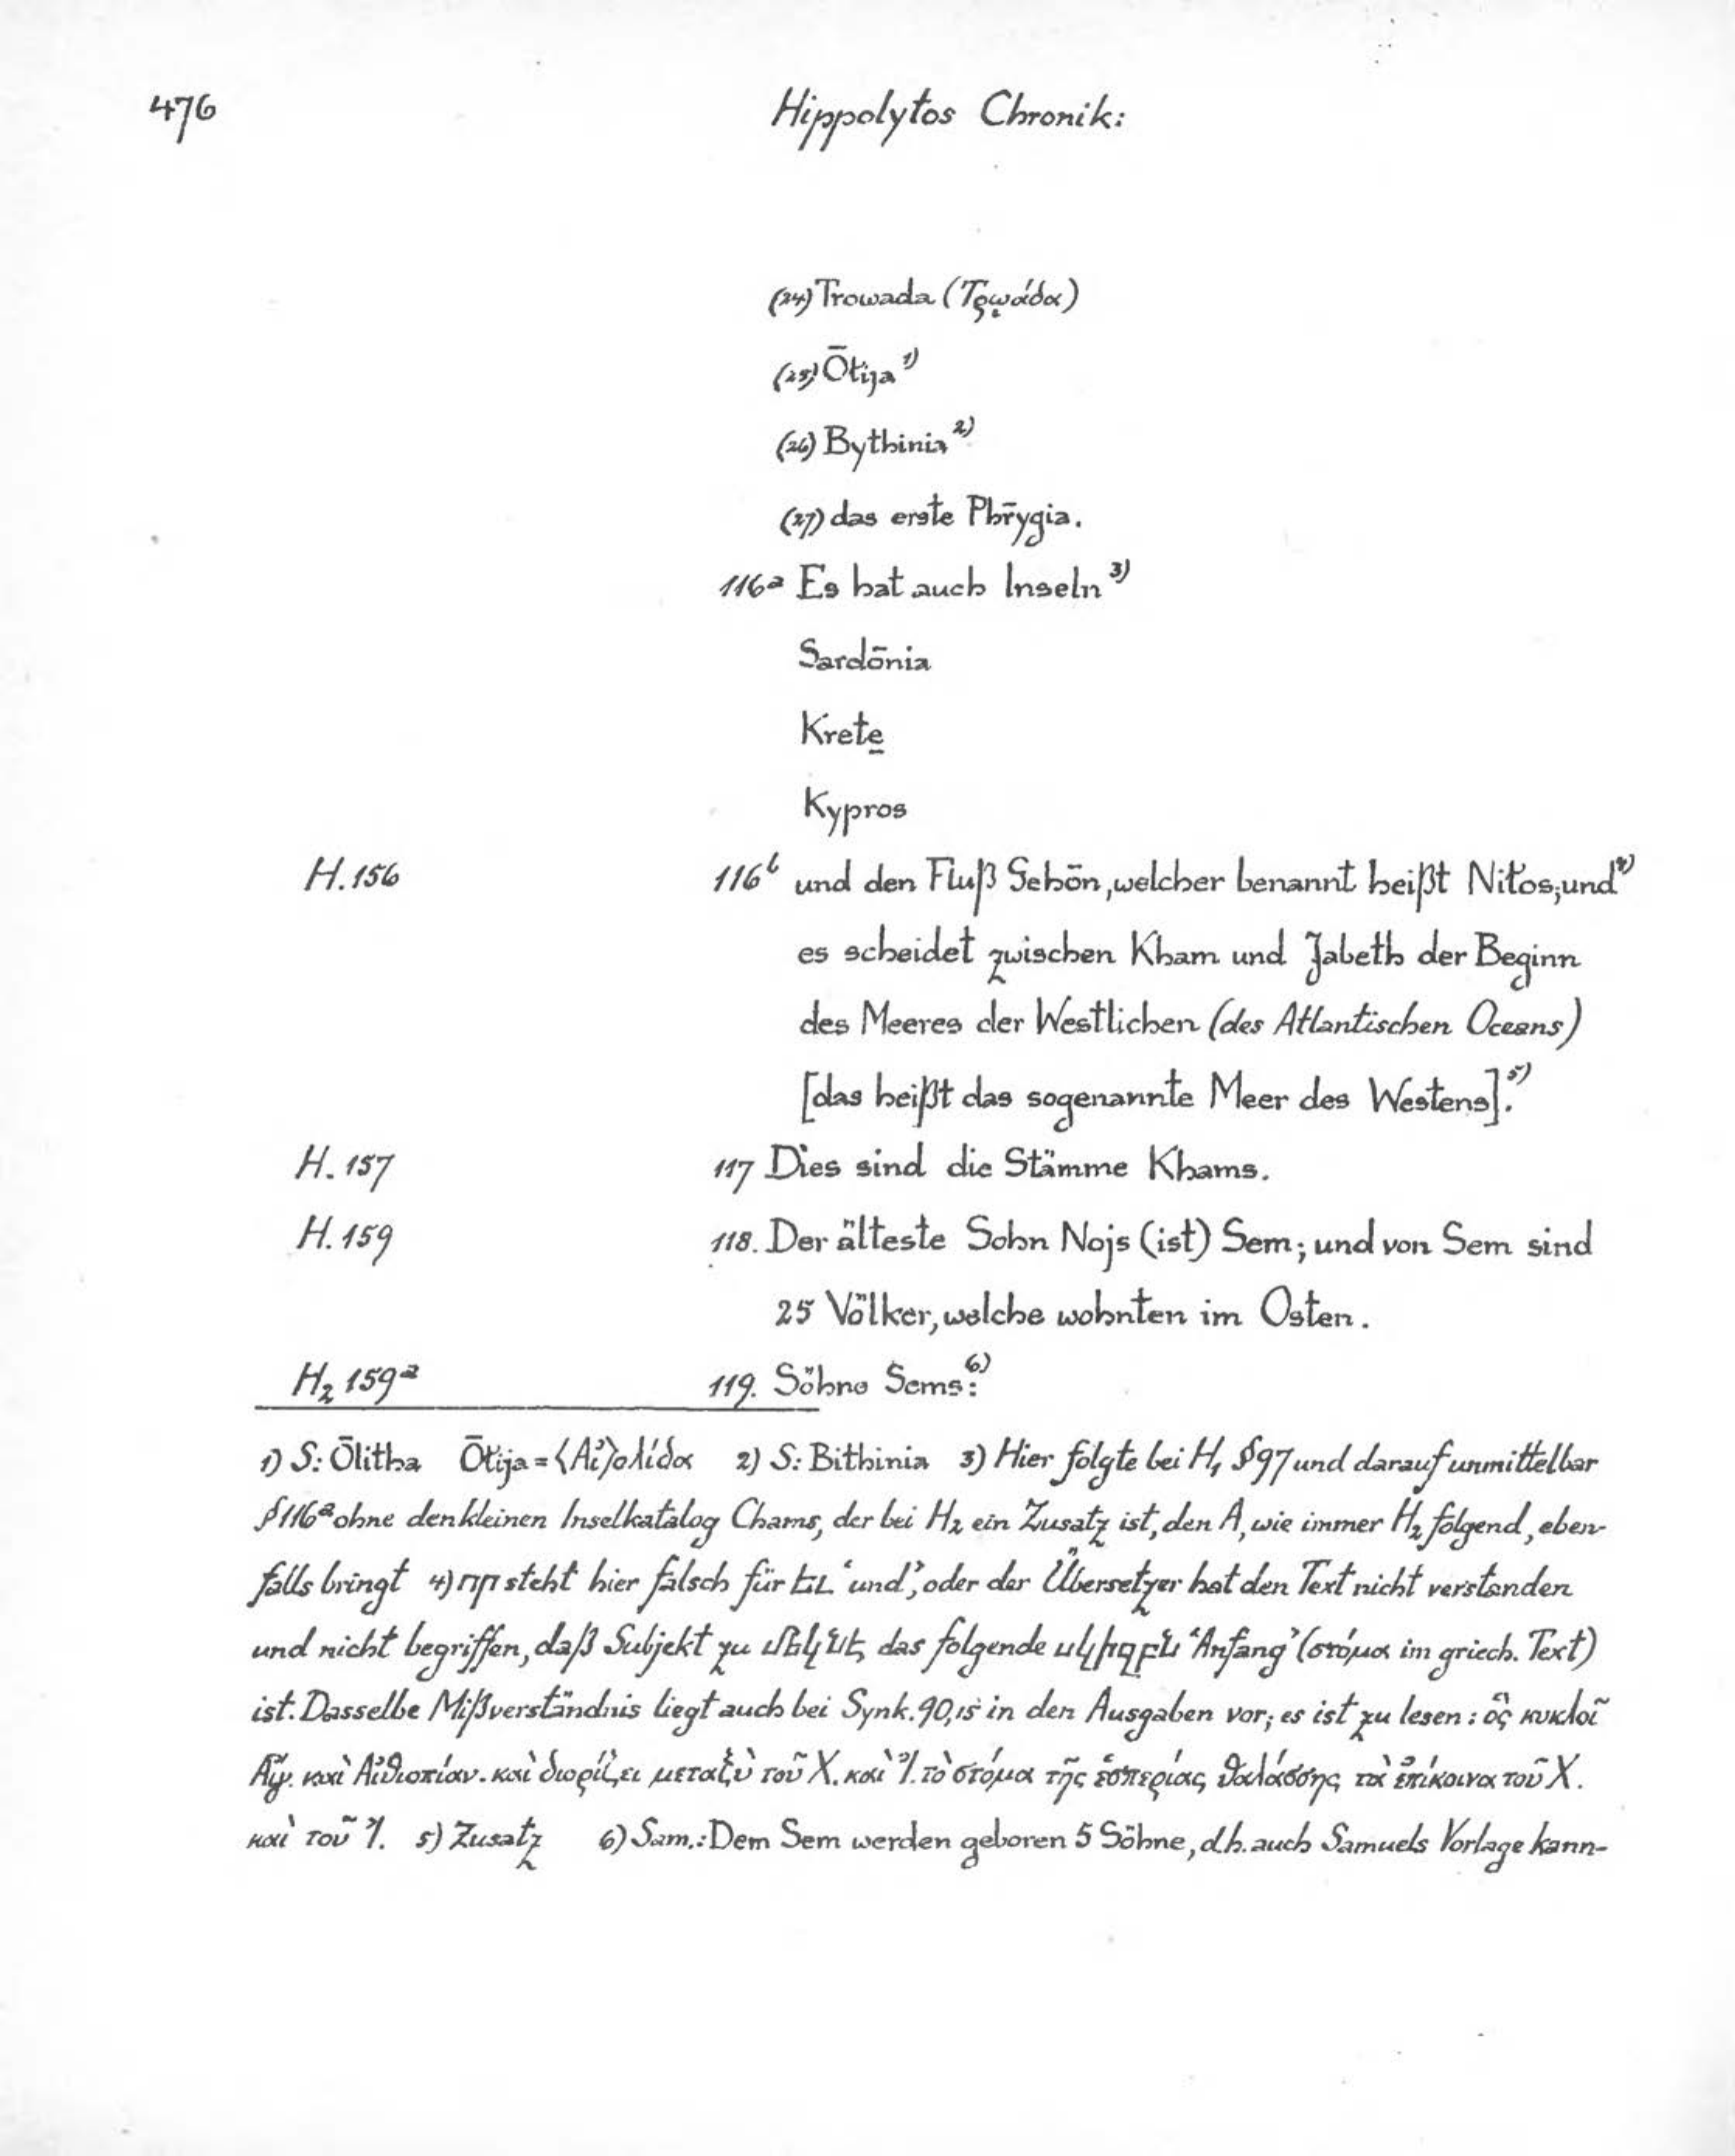 476 Hippolytos Chronik:
(24) Trowada (Τρῳάδα)
(25) Ōtija ¹⁾
(26) Bythinia ²⁾
(27) das erste Phrygia.
116ᵃ Es hat auch Inseln ³⁾
Sardōnia
Krete
Kypros
H. 156 116ᵇ und den Fluß Gehōn, welcher benannt heißt Niłos; und ⁴⁾
es scheidet zwischen Kham und Jabeth der Beginn
des Meeres der Westlichen (des Atlantischen Oceans)
[das heißt das sogenannte Meer des Westens]. ⁵⁾
H. 157 117 Dies sind die Stämme Khams.
H. 159 118. Der älteste Sohn Nojs (ist) Sem; und von Sem sind
25 Völker, welche wohnten im Osten.
H₂ 159ᵃ 119. Söhne Sems: ⁶⁾
1) S: Ōlitha Ōłija = ⟨Αἰ⟩ολίδα 2) S: Bithinia 3) Hier folgte bei H₁ §97 und darauf unmittelbar
§116ᵃ ohne den kleinen Inselkatalog Chams, der bei H₂ ein Zusatz ist, den A, wie immer H₂ folgend, eben-
falls bringt 4) որ steht hier falsch für եւ ‘und’, oder der Übersetzer hat den Text nicht verstanden
und nicht begriffen, daß Subjekt zu մեկնէ das folgende սկիզբն ‘Anfang’ (στόμα im griech. Text)
ist. Dasselbe Mißverständnis liegt auch bei Synk. 90,15 in den Ausgaben vor; es ist zu lesen: ὃς κυκλοῖ
Αἴγ. καὶ Αἰθιοπίαν. καὶ διορίζει μεταξὺ τοῦ Χ. καὶ Ἰ. τὸ στόμα τῆς ἑσπερίας θαλάσσης τὰ ἐπίκοινα τοῦ Χ.
καὶ τοῦ Ἰ. 5) Zusatz 6) Sam.: Dem Sem werden geboren 5 Söhne, d.h. auch Samuels Vorlage kann-